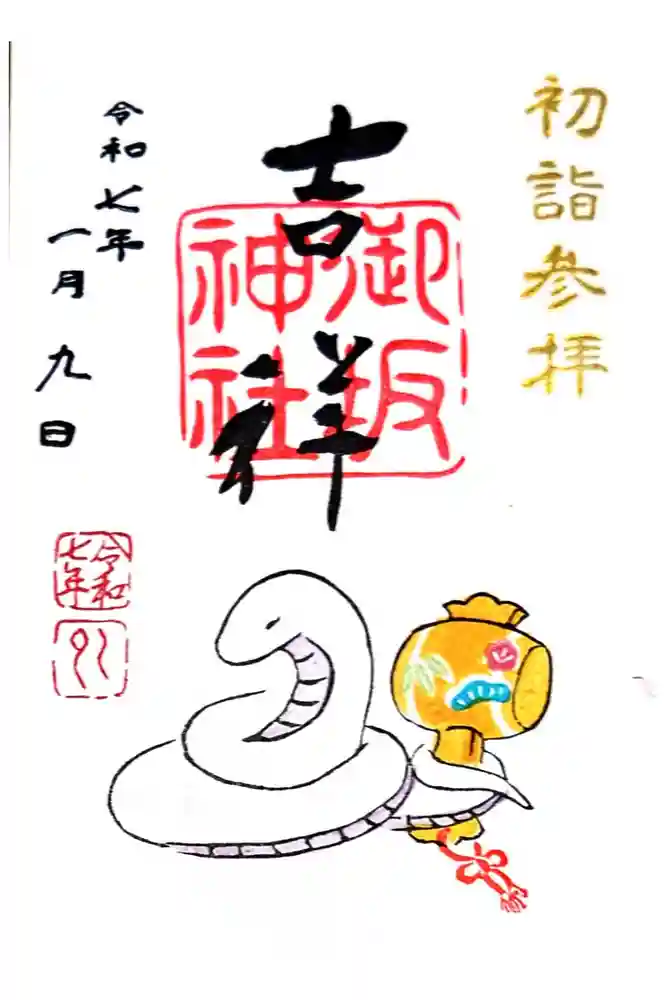 初詣参拝
吉祥
御坂
神社
令和七年
一月九日
令和
七年